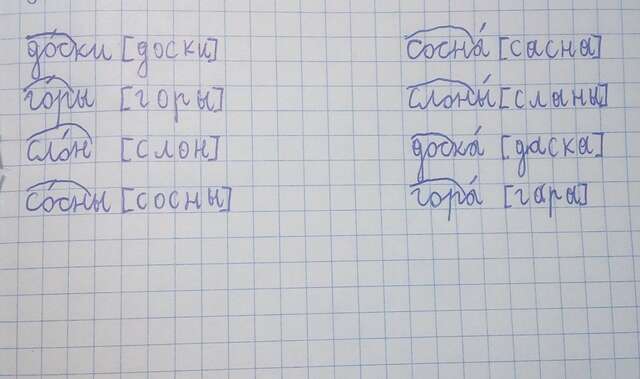 до́ски [доски]
го́ры [горы]
сло́н [слон]
со́сны [сосны]
сосна́ [сасна]
слоны́ [сланы]
доска́ [даска]
гора́ [гара]